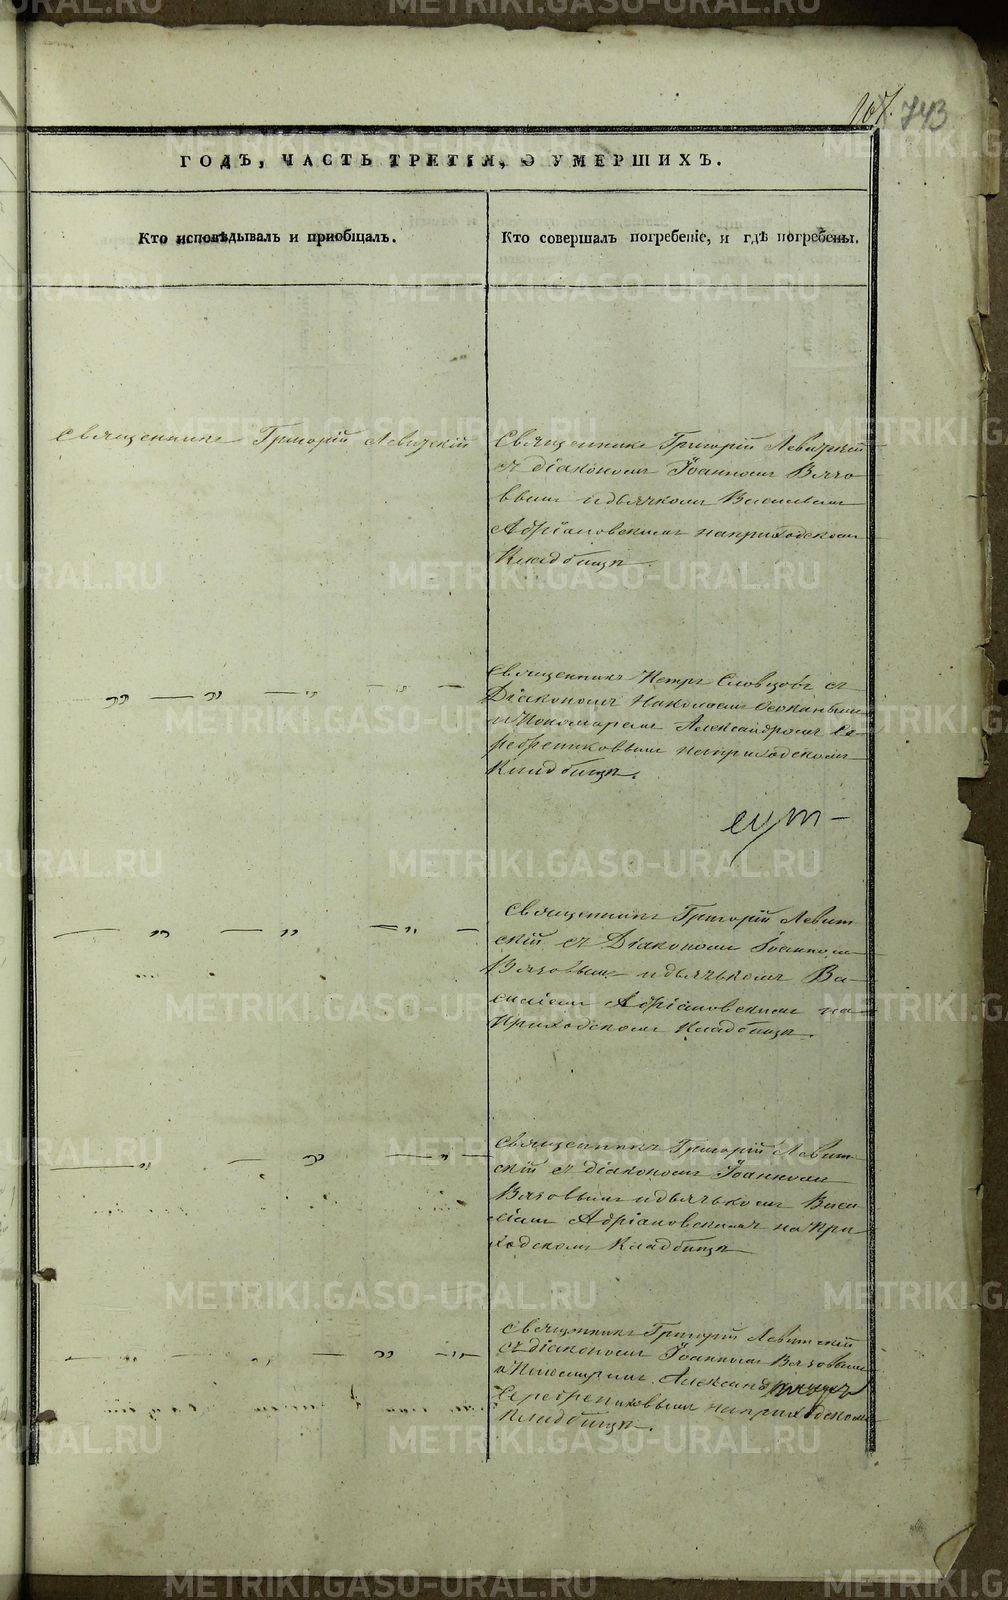 107. 743
ГОДЪ, ЧАСТЬ ТРЕТІЯ, О УМЕРШИХЪ.
Кто исповѣдывалъ и пріобщалъ.
Кто совершалъ погребеніе, и гдѣ погребены.
Священникъ Григорій Левитскій
Священникъ Григорій Левитскій
съ діакономъ Іоанномъ Вязо-
вымъ и дьячкомъ Василіемъ
Адріановскимъ на приходскомъ
Кладбищѣ.
— " — " — " — " —
Священникъ Петръ Словцовъ съ
Діакономъ Николаемъ
и Пономаремъ Александромъ Се-
ребрениковымъ на приходскомъ
Кладбищѣ.
— " — " — " —
Священникъ Григорій Левит-
скій съ Діакономъ Іоанномъ
Вязовымъ и дьячькомъ Ва-
силіемъ Адріановскимъ на
Приходскомъ Кладбищѣ.
— " — " — " —
Священникъ Григорій Левит-
скій съ діакономъ Іоанномъ
Вязовымъ и дьячькомъ Васи-
ліемъ Адріановскимъ на При-
ходскомъ Кладбищѣ
— " — " — " —
Священникъ Григорій Левитскій
съ діакономъ Іоанномъ Вязовымъ
и Пономаремъ Александромъ
Серебрениковымъ на приходскомъ
Кладбищѣ.
METRIKI.GASO-URAL.RU